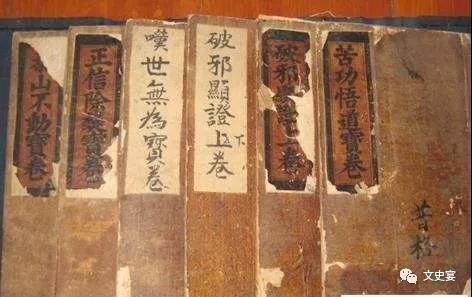 苦功悟道寶卷
破邪
卷
破邪顯證上卷
下
嘆世無為寶卷
正信除
寶卷
山不動寶卷
文史宴